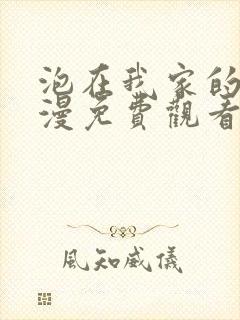 泡在我家的
漫免費觀看
風知威儀